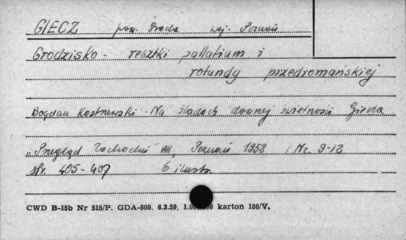 GIECZ pow. Środa woj. Poznań
Grodzisko - resztki pallatium i
rotundy przedromańskiej
Bogdan Kostrzewski - Na śladach dawnej świetności Giecza
"Przegląd Zachodni" III, Poznań 1958 Nr. 9-12
str. 405-407 6 ilustr.
CWD B-15b Nr 515/P. GDA-809. 6.3.59, karton 180/V.